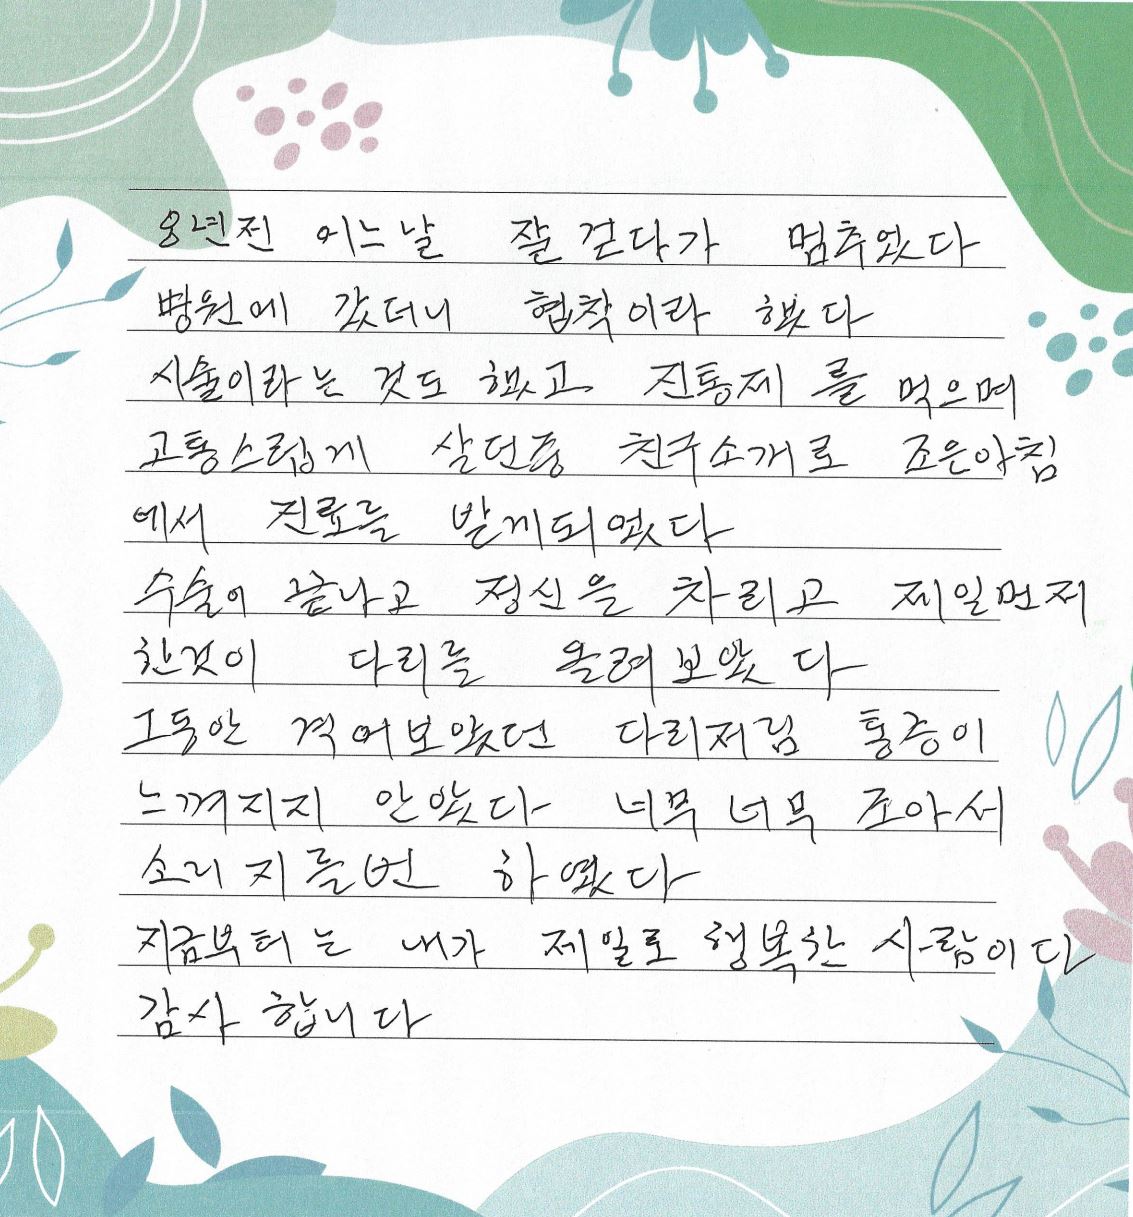 8년전 어느날 잘 걷다가 멈추었다
병원에 갔더니 협착이라 했다
시술이라는 것도 했고 진통제 를 먹으며
고통스럽게 살던중 친구소개로 조은아침
에서 진료를 받게되었다
수술이 끝나고 정신을 차리고 제일먼저
한것이 다리를 올려보았다
그동안 격어보았던 다리저림 통증이
느껴지지 안았다 너무 너무 조아서
소리지를번 하였다
지금부터는 내가 제일로 행복한 사람이다
감사 합니다